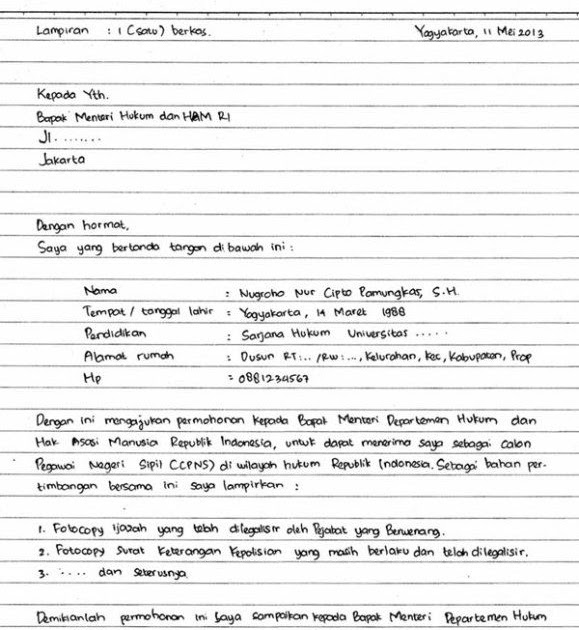 Lampiran : 1 (satu) berkas. Yogyakarta, 11 Mei 2013
Kepada Yth.
Bapak Menteri Hukum dan HAM RI
Jl. .......
Jakarta
Dengan hormat,
Saya yang bertanda tangan di bawah ini :
Nama : Nugroho Nur Cipto Pamungkas, S.H.
Tempat / tanggal lahir : Yogyakarta, 14 Maret 1988
Pendidikan : Sarjana Hukum Universitas .....
Alamat rumah : Dusun RT:.. /RW:..., Kelurahan, Kec, Kabupaten, Prop
Hp : 0881234567
Dengan ini mengajukan permohonan kepada Bapak Menteri Departemen Hukum dan
Hak Asasi Manusia Republik Indonesia, untuk dapat menerima saya sebagai Calon
Pegawai Negeri Sipil (CPNS) di wilayah hukum Republik Indonesia. Sebagai bahan per-
timbangan bersama ini saya lampirkan :
1. Fotocopy Ijazah yang telah dilegalisir oleh Pejabat yang Berwenang.
2. Fotocopy Surat Keterangan Kepolisian yang masih berlaku dan telah dilegalisir.
3. ..... dan seterusnya
Demikianlah permohonan ini saya sampaikan kepada Bapak Menteri Departemen Hukum